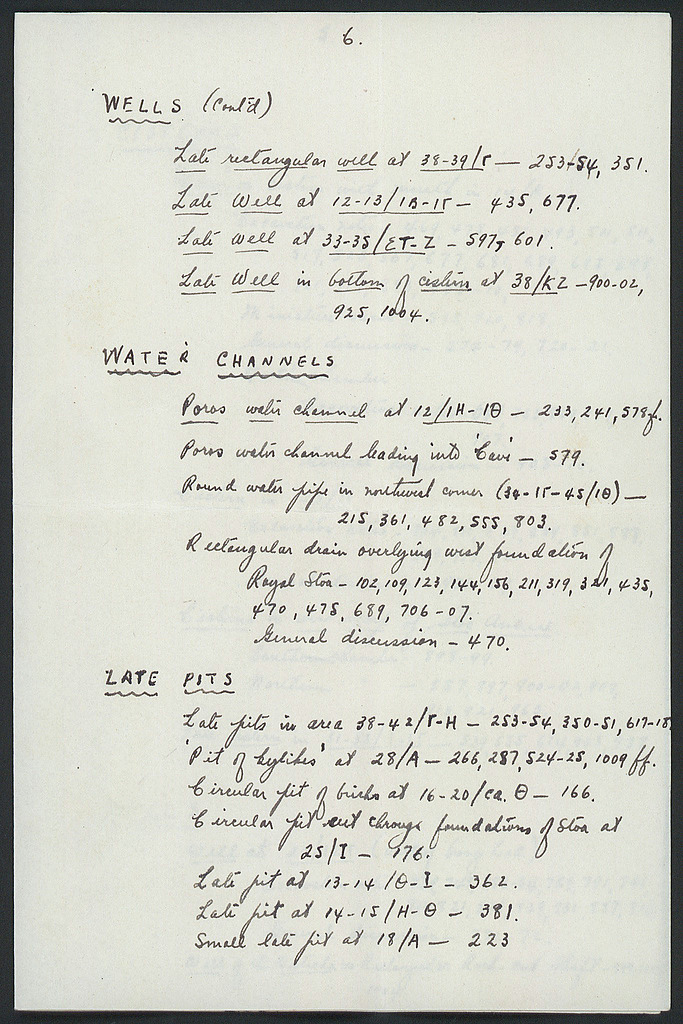 6.
WELLS (Cont'd)
Late rectangular well at 38-39/Γ — 253-54, 351.
Late Well at 12-13/ΙΒ-ΙΓ — 435, 677.
Late Well at 33-35/ΣΤ-Ζ — 597, 601.
Late Well in bottom of cistern at 38/ΚΖ — 900-02,
925, 1004.
WATER CHANNELS
Poros water channel at 12/ΙΗ-ΙΘ — 233, 241, 578ff.
Poros water channel leading into 'Cave' — 579.
Round water pipe in northwest corner (34-ΙΓ-45/ΙΘ) —
215, 361, 482, 555, 803.
Rectangular drain overlying west foundation of
Royal Stoa — 102, 109, 123, 144, 156, 211, 319, 321, 435,
470, 475, 689, 706-07.
General discussion — 470.
LATE PITS
Late pits in area 38-42/Γ-Η — 253-54, 350-51, 617-18
'Pit of kylikes' at 28/Α — 266, 287, 524-25, 1009 ff.
Circular pit of bricks at 16-20/ca. Θ — 166.
Circular pit cut through foundations of Stoa at
25/Ι — 176.
Late pit at 13-14/Θ-Ι — 362.
Late pit at 14-15/Η-Θ — 381.
Small late pit at 18/Α — 223